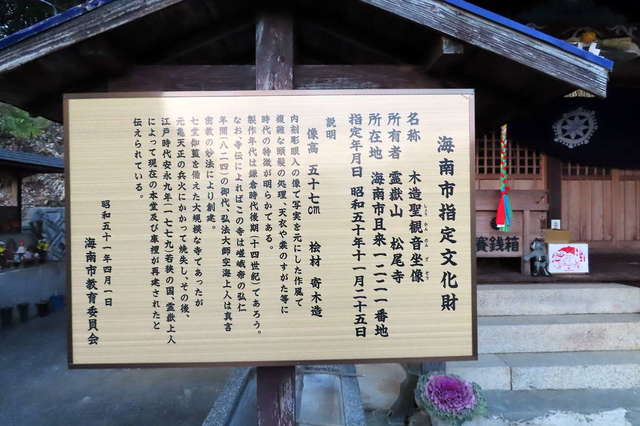 海南市指定文化財
名称　木造聖観音坐像
しょうかんのんざぞう
所有者　霊嶽山　松尾寺
所在地　海南市且来一二二一番地
指定年月日　昭和五十年十一月二十五日
説明
像高　五十七㎝　桧材　寄木造
内刳彫眼入の像で写実を元にした作風で
複雑な頭髪の処理、天衣や裳のすがた等に
時代の特徴が明らかである。
製作年代は鎌倉時代後期（十四世紀）であろう。
なお、寺伝によればこの寺は嵯峨帝の弘仁
年間（八二四）の御代、弘法大師空海上人は真言
密教の妙法により創建。
七堂伽藍を備えた大規模な寺であったが
元亀天正の兵火にかかって焼失し、その後、
江戸時代安永九年（一七七九）若狭の国、霊嶽上人
によって現在の本堂及び庫裡が再建されたと
伝えられている。
昭和五十一年四月一日
海南市教育委員会
賽銭箱